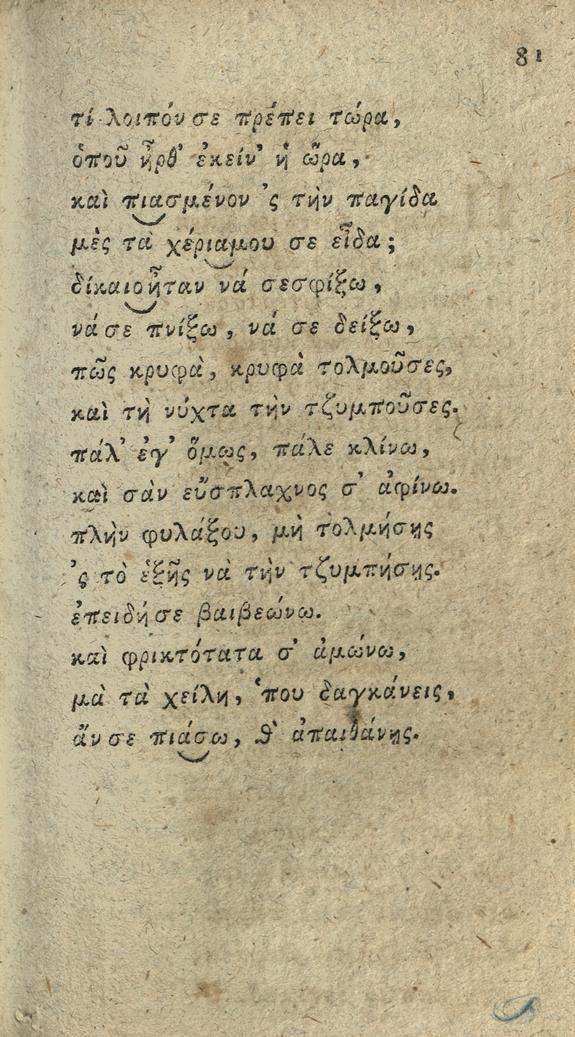 81
τί λοιπόν σε πρέπει τώρα,
ὁποῦ ἦρθ' ἐκείν' ἡ ὥρα,
καὶ πιασμένον 'ς τὴν παγίδα
μὲς τὰ χέριαμου σε εἶδα;
δίκαιοἦταν νά σεσφίξω,
νάσε πνίξω, νά σε δείξω,
πῶς κρυφὰ, κρυφὰ τολμοῦσες,
καὶ τὴ νύχτα τὴν τζυμποῦσες.
πάλ' ἐγ' ὅμως, πάλε κλίνω,
καὶ σὰν εὔσπλαχνος σ' ἀφίνω.
πλὴν φυλάξου, μὴ τολμήσῃς
'ς τὸ ἑξῆς νὰ τὴν τζυμπήσῃς.
ἐπειδή σε βαιβεώνω.
καὶ φρικτότατα σ' ἀμώνω,
μὰ τὰ χείλη, 'που δαγκάνεις,
ἄν σε πιάσω, θ' ἀπαιθάνῃς.